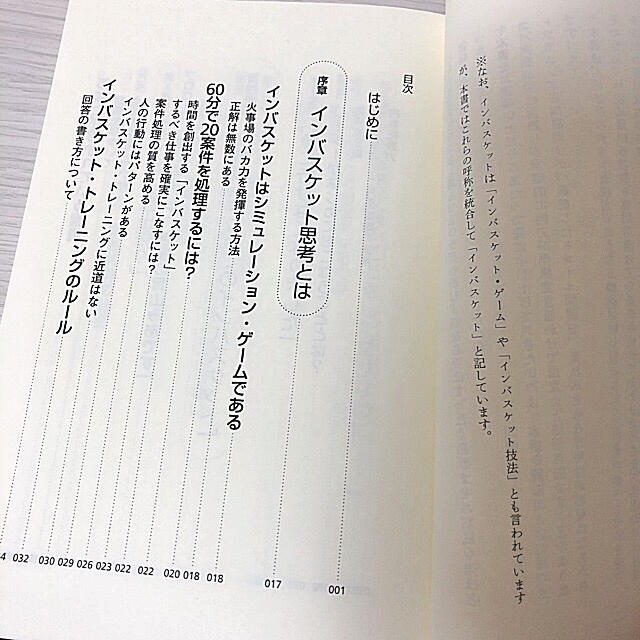 ※なお、インバスケットは「インバスケット・ゲーム」や「インバスケット技法」とも言われています
が、本書ではこれらの呼称を統合して「インバスケット」と記しています。
目次
はじめに 001
序章 インバスケット思考とは 017
インバスケットはシミュレーション・ゲームである 018
火事場のバカ力を発揮する方法 018
正解は無数にある 020
60分で20案件を処理するには? 022
時間を創出する「インバスケット」 022
するべき仕事を確実にこなすには? 023
案件処理の質を高める 026
人の行動にはパターンがある 029
インバスケット・トレーニングに近道はない 030
インバスケット・トレーニングのルール 032
回答の書き方について 4